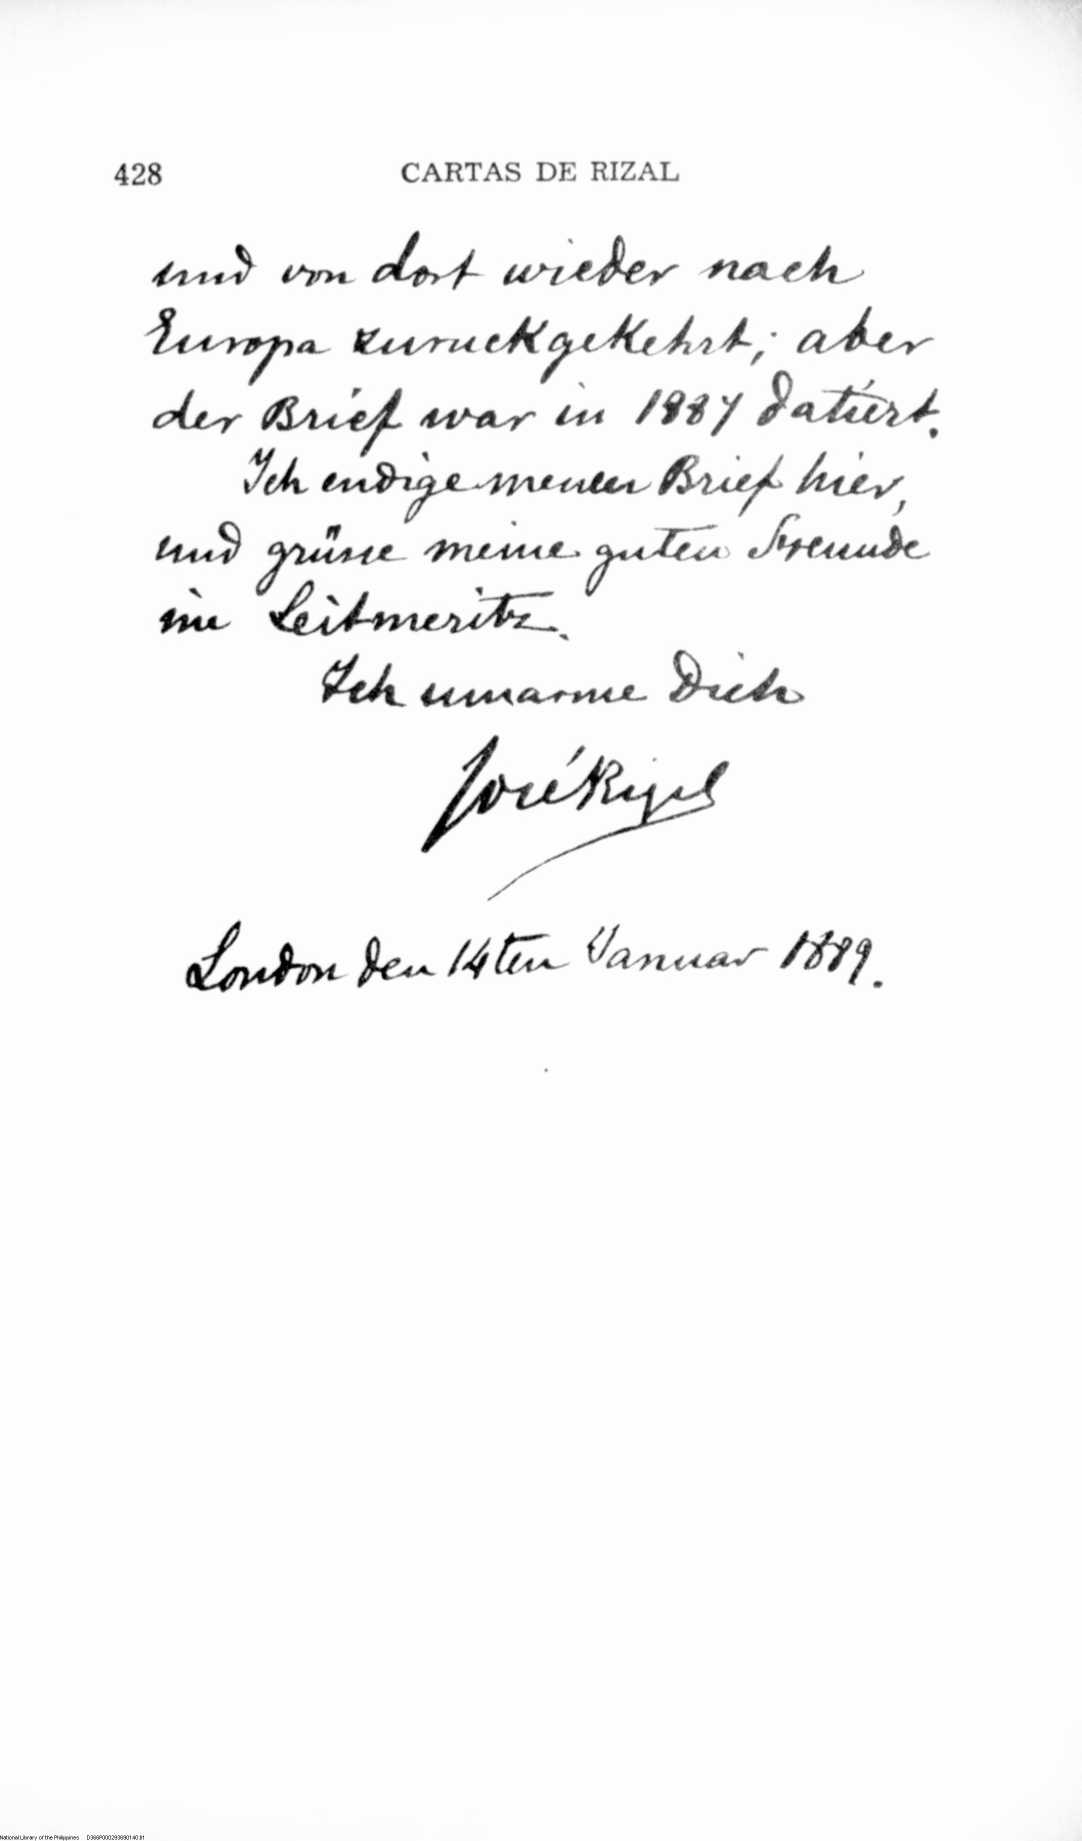 428 CARTAS DE RIZAL
und von dort wieder nach
Europa zuruckgekehrt; aber
der Brief war in 1887 datiert.
Ich endige meinen Brief hier,
und grüsse meine guten Freunde
in Leitmeritz.
Ich umarme Dich
José Rizal
London den 14ten Januar 1889.
National Library of the Philippines